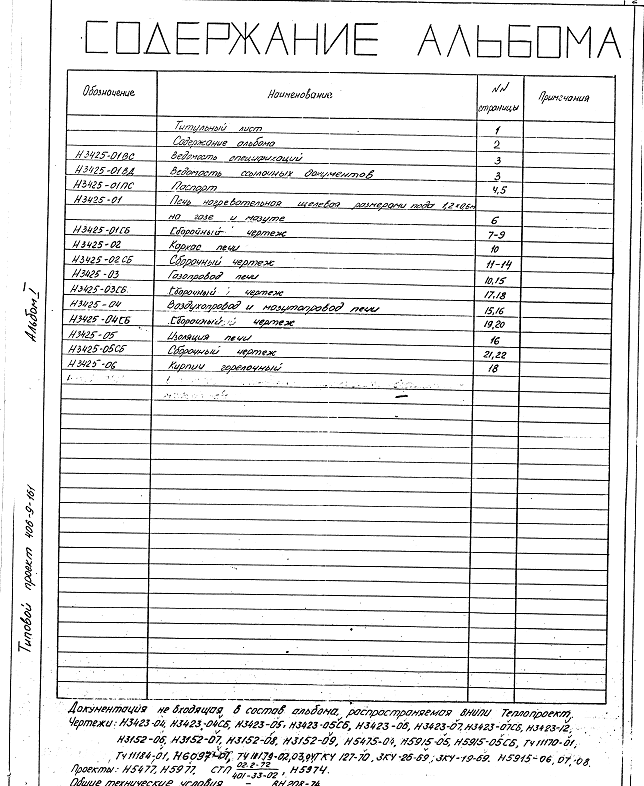 СОДЕРЖАНИЕ АЛЬБОМА
Обозначение Наименование NN страницы Примечания
Титульный лист 1
Содержание альбома 2
Н3425-01ВС Ведомость спецификаций 3
Н3425-01ВД Ведомость ссылочных документов 3
Н3425-01ПС Паспорт 4,5
Н3425-01 Печь нагревательная щелевая размерами пода 1,2×0,6м
на газе и мазуте 6
Н3425-01СБ Сборочный чертеж 7-9
Н3425-02 Каркас печи 10
Н3425-02СБ Сборочный чертеж 11-14
Н3425-03 Газопровод печи 10,15
Н3425-03СБ Сборочный чертеж 17,18
Н3425-04 Воздухопровод и мазутопровод печи 15,16
Н3425-04СБ Сборочный чертеж 19,20
Н3425-05 Изоляция печи 16
Н3425-05СБ Сборочный чертеж 21,22
Н3425-06 Кирпич горелочный 18
Альбом I
Типовой проект 406-9-161
Документация не входящая в состав альбома, распространяемая ВНИПИ Теплопроект
Чертежи: Н3423-04, Н3423-04СБ, Н3423-05, Н3423-05СБ, Н3423-06, Н3423-07, Н3423-07СБ, Н3423-12,
Н3152-06, Н3152-07, Н3152-08, Н3152-09, Н5475-04, Н5915-05, Н5915-05СБ, ТЧ 11170-01,
ТЧ 11184-01, Н6097-01, ТЧ 18179-02,03,04, ГКУ 127-70, ЗКУ-26-69, ЗКУ-19-69. Н5915-06,07,08.
Проекты: Н5477, Н5977, СТП 02.2-72 401-33-02, Н5974.
Общие технические условия - ВН 208-74